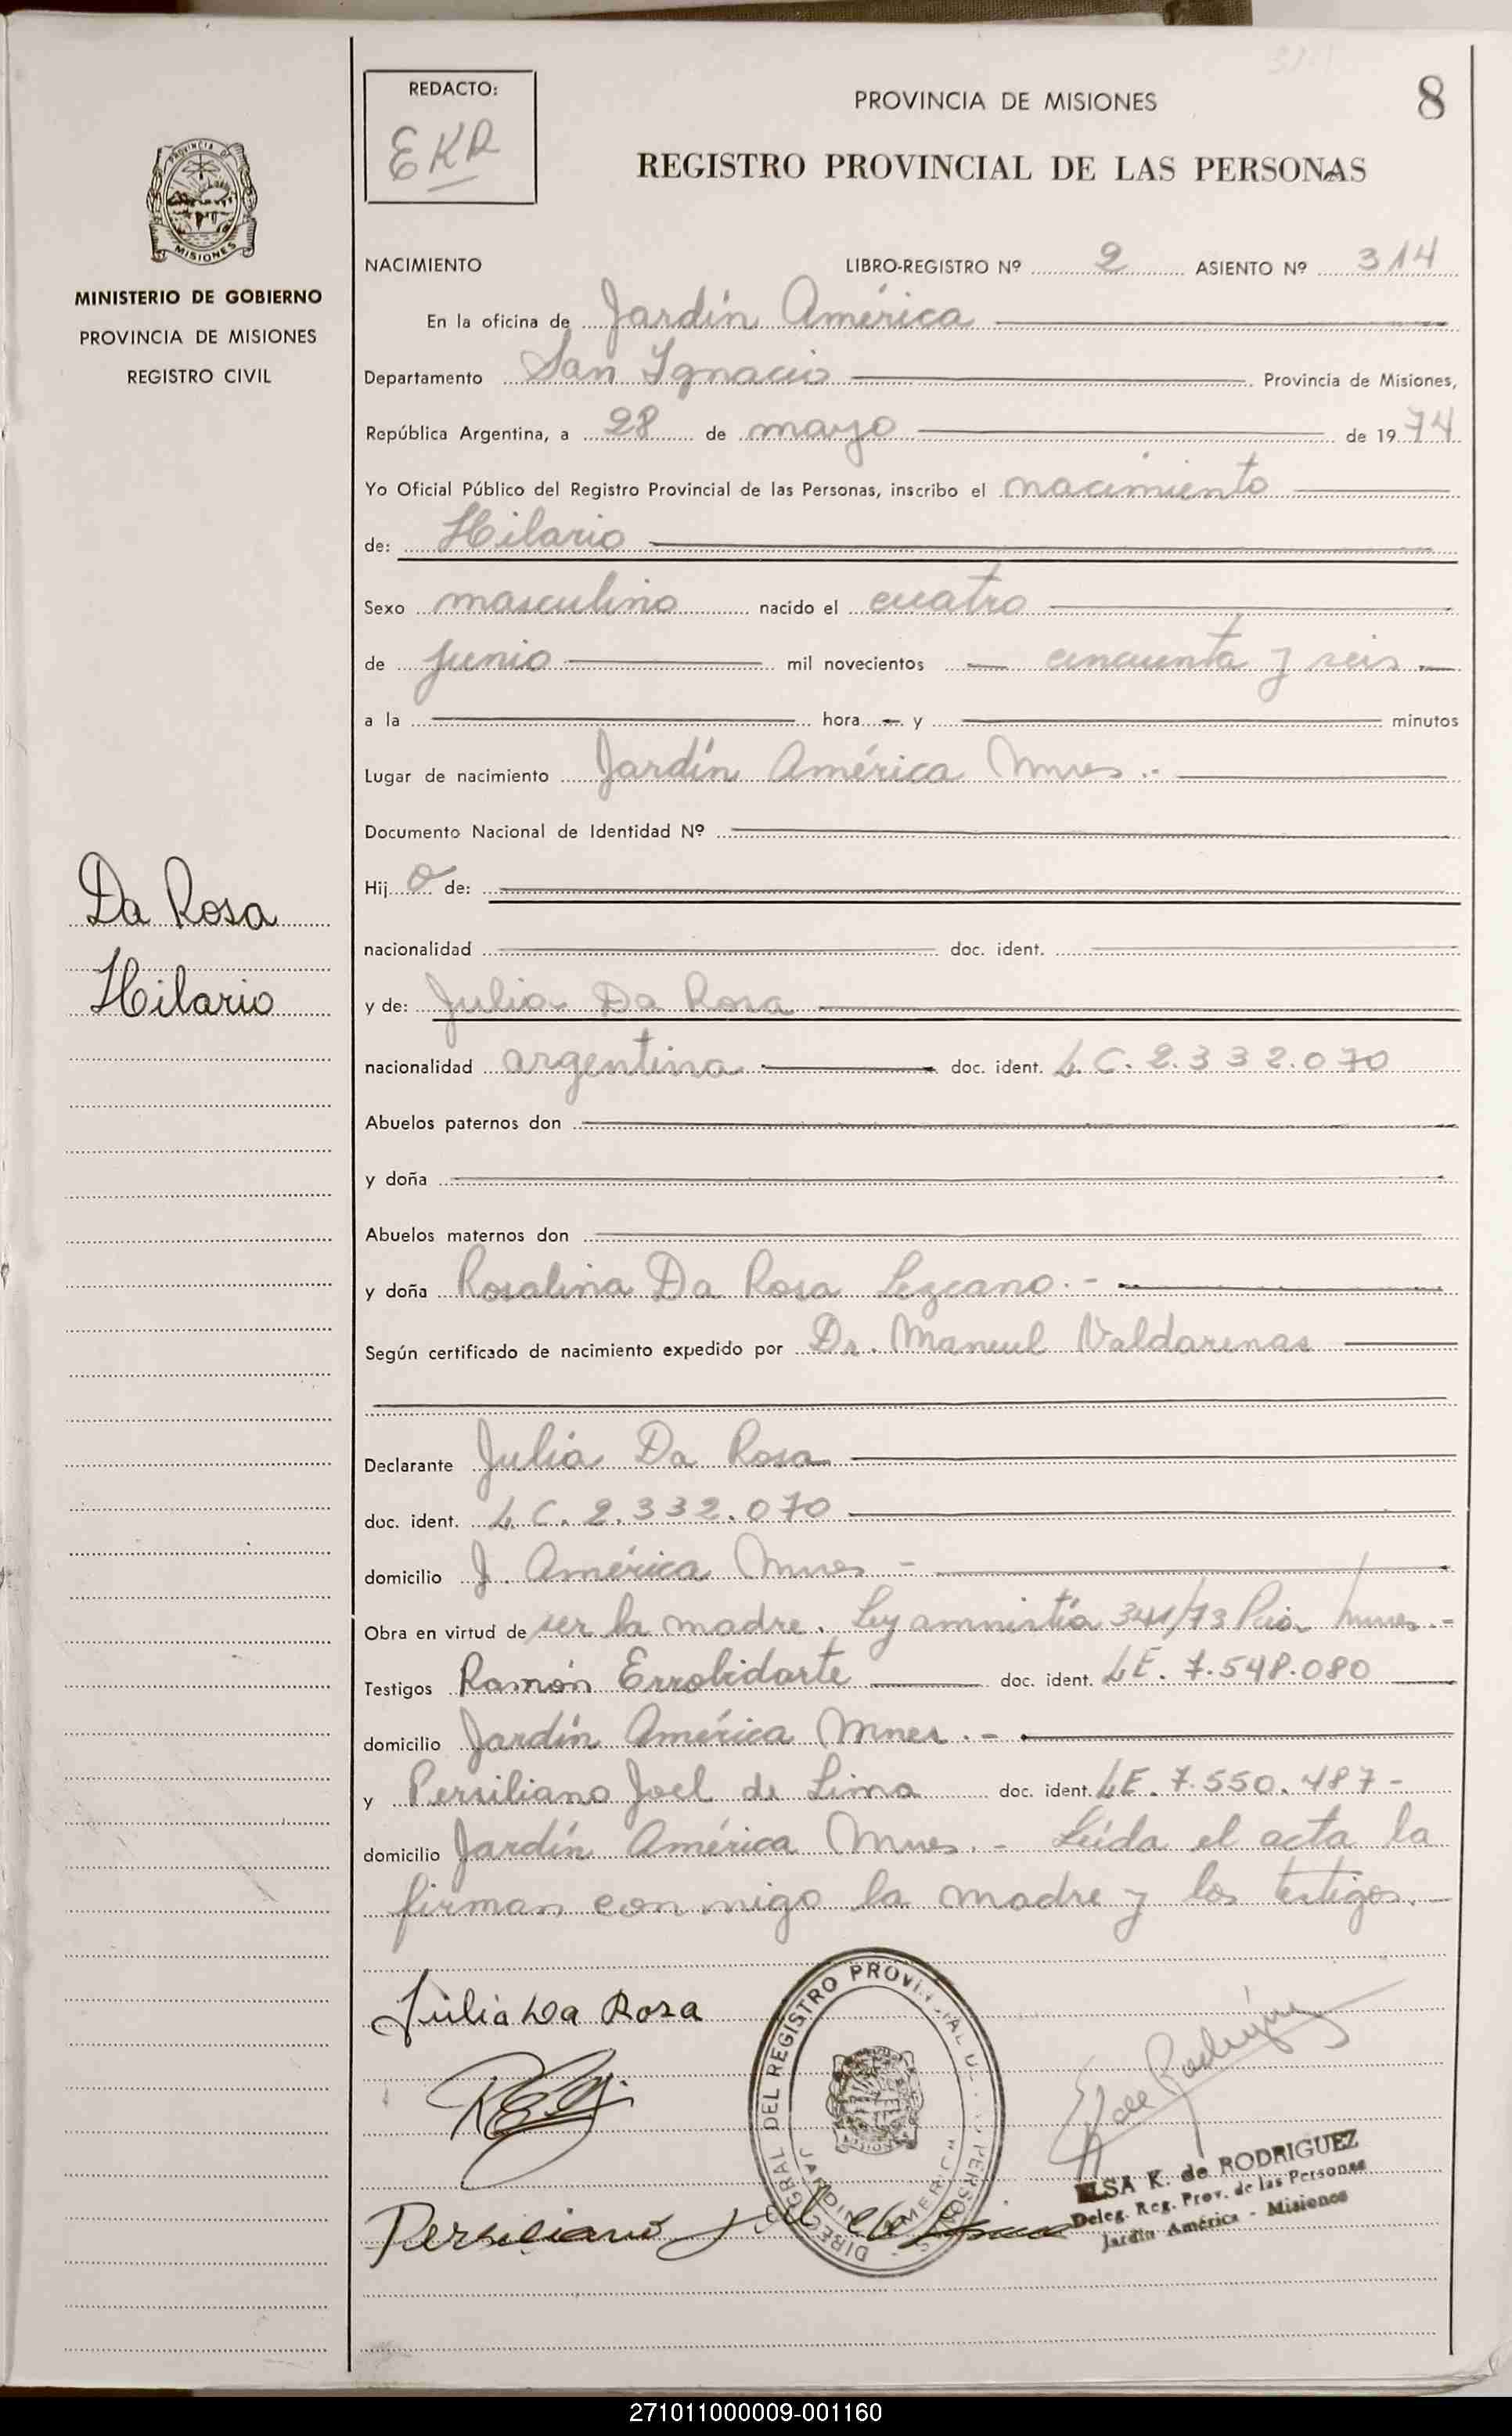 8
REDACTO:
EKR
PROVINCIA DE MISIONES
REGISTRO PROVINCIAL DE LAS PERSONAS
PROVINCIA DE
MISIONES
MINISTERIO DE GOBIERNO
PROVINCIA DE MISIONES
REGISTRO CIVIL
NACIMIENTO LIBRO-REGISTRO Nº 2 ASIENTO Nº 314
En la oficina de Jardín América
Departamento San Ignacio Provincia de Misiones,
República Argentina, a 28 de mayo de 1974
Yo Oficial Público del Registro Provincial de las Personas, inscribo el nacimiento
de: Hilario
Sexo masculino nacido el cuatro
de junio mil novecientos cincuenta y seis
a la hora y minutos
Lugar de nacimiento Jardín América Mnes.-
Documento Nacional de Identidad Nº
Da Rosa
Hilario
Hijo de:
nacionalidad doc. ident.
y de: Julia Da Rosa
nacionalidad argentina doc. ident. L.C. 2.332.070
Abuelos paternos don
y doña
Abuelos maternos don
y doña Rosalina Da Rosa Lezcano.-
Según certificado de nacimiento expedido por Dr. Manuel Valdarenas
Declarante Julia Da Rosa
doc. ident. L.C. 2.332.070
domicilio J. América Mnes -
Obra en virtud de ser la madre. Ley amnistía 341/73 Pcia. Mnes.-
Testigos Ramón Errobidarte doc. ident. L.E. 7.548.080
domicilio Jardín América Mnes.-
y Persiliano Joel de Lima doc. ident. L.E. 7.550.487-
domicilio Jardín América Mnes.- Leída el acta la
firman conmigo la madre y los testigos.
Julia Da Rosa
DIREC GRAL DEL REGISTRO PROVINCIAL DE PERSONAS
JARDIN AMERICA
MISIONES
E K de Rodríguez
ELSA K. de RODRIGUEZ
Deleg. Reg. Prov. de las Personas
Jardín América - Misiones
Persiliano Joel de Lima
271011000009-001160